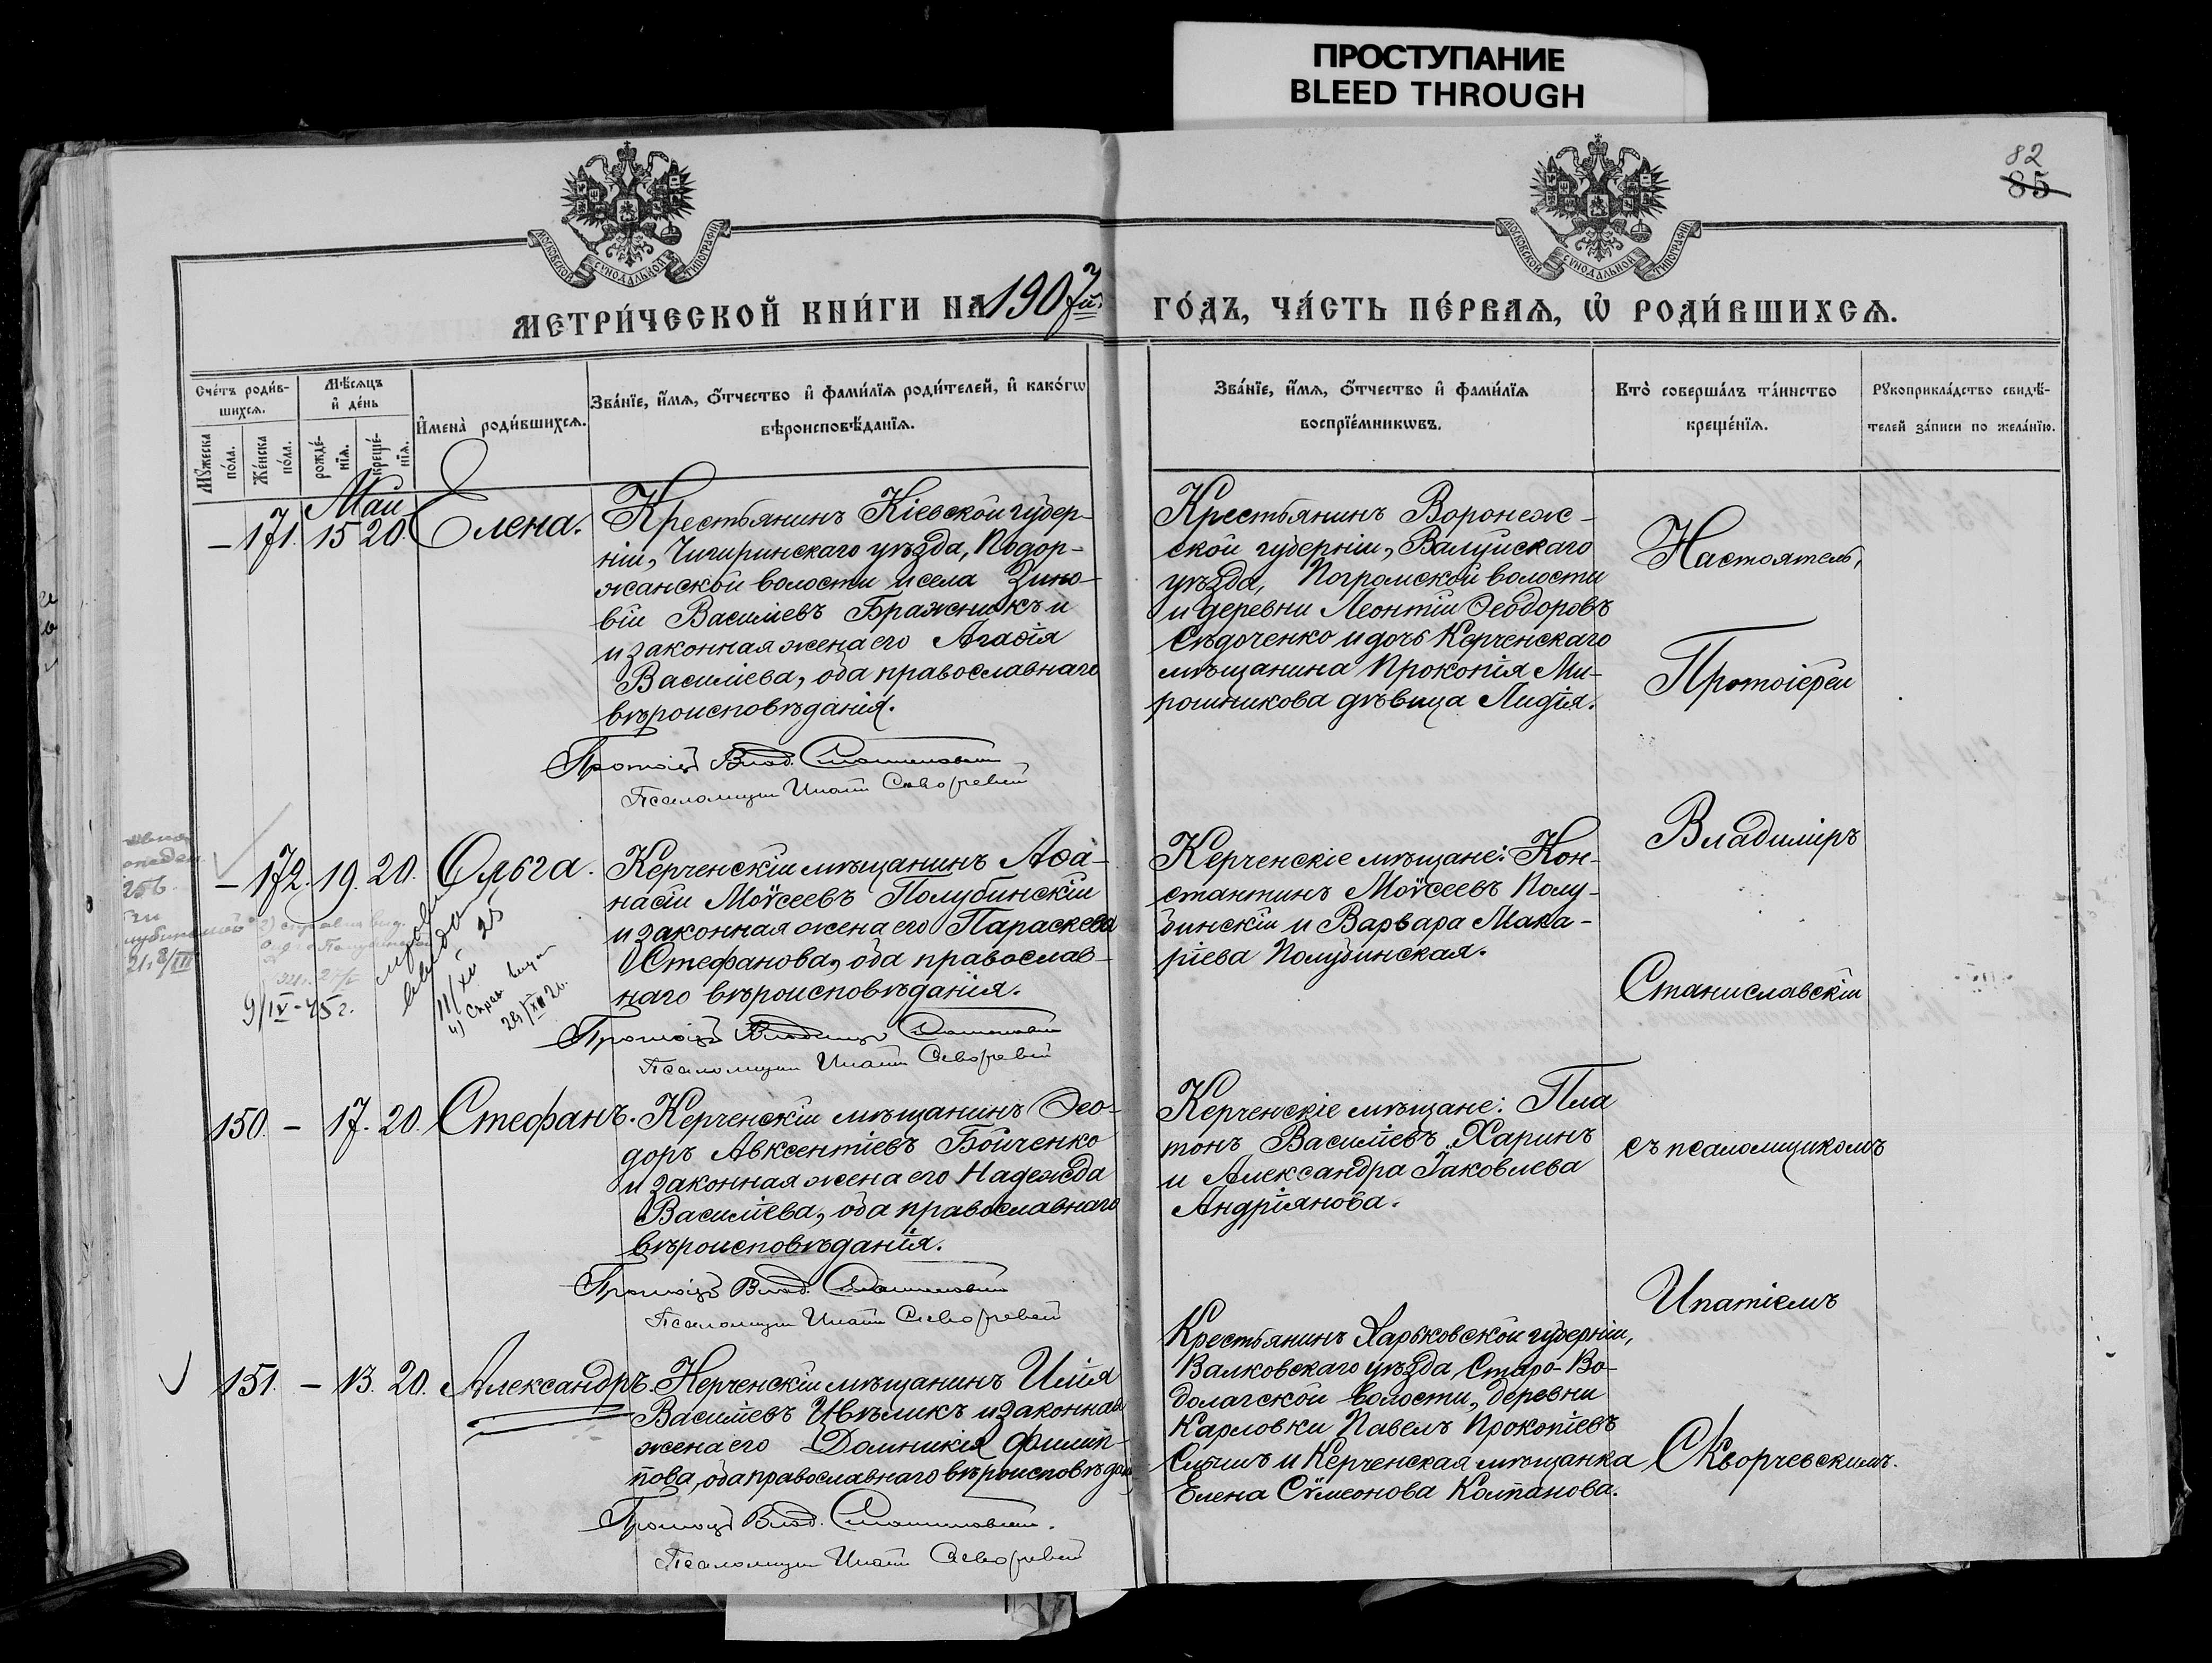 ПРОСТУПАНИЕ
BLEED THROUGH
82
85
МОСКОВСКОЙ СѴНОДАЛЬНОЙ ТИПОГРАФІИ
МОСКОВСКОЙ СѴНОДАЛЬНОЙ ТИПОГРАФІИ
МЕТРИ́ЧЕСКОЙ КНИ́ГИ НА 1907й
ГО́ДЪ, ЧА́СТЬ ПЕ́РВАѦ, Ѡ҆ РОДИ́ВШИХСѦ.
Сче́тъ роди́в-
шихсѧ.
Мꙋ́жеска
по́ла.
Же́нска
по́ла.
Мѣ́сѧцъ
и҆ де́нь
рожде́-
нїѧ.
креще́-
нїѧ.
И҆мена̀ роди́вшихсѧ.
Зва́нїе, и҆́мѧ, ѻ҆́тчество и҆ фамилїѧ роди́телей, и҆ како́гѡ
вѣроисповѣ́данїѧ.
Зва́нїе, и҆́мѧ, ѻ҆́тчество и҆ фами́лїѧ
воспрїе́мникѡвъ.
Кто̀ соверша́лъ та́инство
креще́нїѧ.
Рꙋкоприкла́дство свидѣ́-
телей за́писи по жела́нїю.
Май
– 171. 15 20. Елена.
Крестьянинъ Кіевской губер-
ніи, Чигиринскаго уѣзда, Подор-
жанской волости и села Зино-
вій Василіевъ Бражникъ и
и законная жена его Агаѳія
Василіева, оба православнаго
вѣроисповѣданія.
Протоіер Влад. Станиславскій
Псаломщик Ипатій Скворчевскій
Крестьянинъ Воронеж-
ской губерніи, Валуйскаго
уѣзда, Погромской волости
и деревни Леонтій Ѳеодоровъ
Сѣдоченко и дочь Керченскаго
мѣщанина Прокопія Ми-
рошникова дѣвица Лидія.
Настоятель,
Протоіерей
Владиміръ
Станиславскій
съ псаломщикомъ
Ипатіемъ
Скворчевскимъ.
– 172. 19. 20. Ольга.
Керченскій мѣщанинъ Аѳа-
насій Моѵсеевъ Полубинскій
и законная жена его Параскева
Стефанова, оба православ-
наго вѣроисповѣданія.
Протоіер Владимір Станиславскій
Псаломщик Ипатій Скворчевскій
Керченскіе мѣщане: Кон-
стантинъ Моѵсеевъ Полу-
бинскій и Варвара Мака-
ріева Полубинская.
9/IV-45 г.
11/XII 25
150. – 17. 20. Стефанъ.
Керченскій мѣщанинъ Ѳео-
доръ Авксентіевъ Бойченко
и законная жена его Надежда
Василіева, оба православнаго
вѣроисповѣданія.
Протоіер Влад. Станиславскій
Псаломщик Ипатій Скворчевскій
Керченскіе мѣщане: Пла
тонъ Василіевъ Харинъ
и Александра Іаковлева
Андріянова.
151. – 13. 20. Александръ.
Керченскій мѣщанинъ Илія
Василіевъ Цвѣликъ и законная
жена его Домникія Филип-
пова, оба православнаго вѣроисповѣдан
Протоіер Влад. Станиславскій.
Псаломщик Ипатій Скворчевскій
Крестьянинъ Харьковской губерніи,
Валковскаго уѣзда, Старо-Во-
долагской волости, деревни
Карловки Павелъ Прокопіевъ
и Керченская мѣщанка
Елена Сѵмеонова Колпанова.